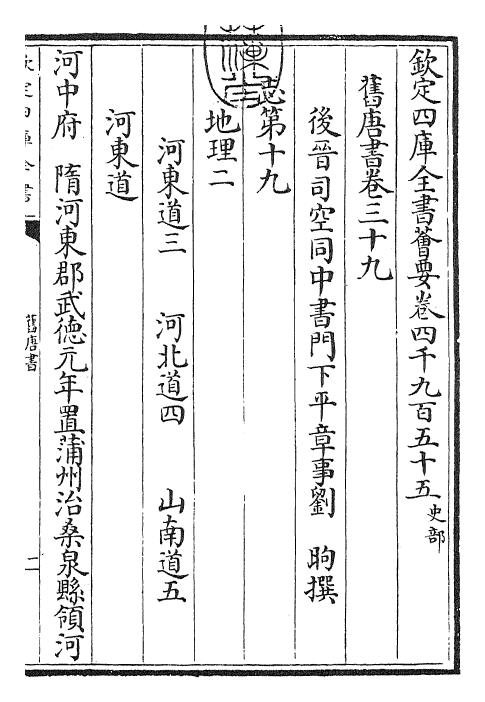 欽定四庫全書薈要卷四千九百五十五 史部
舊唐書卷三十九
後晉司空同中書門下平章事劉 昫撰
志第十九
地理二
河東道三 河北道四 山南道五
河東道
河中府 隋河東郡武德元年置蒲州治桑泉縣領河
欽定四庫全書
舊唐書